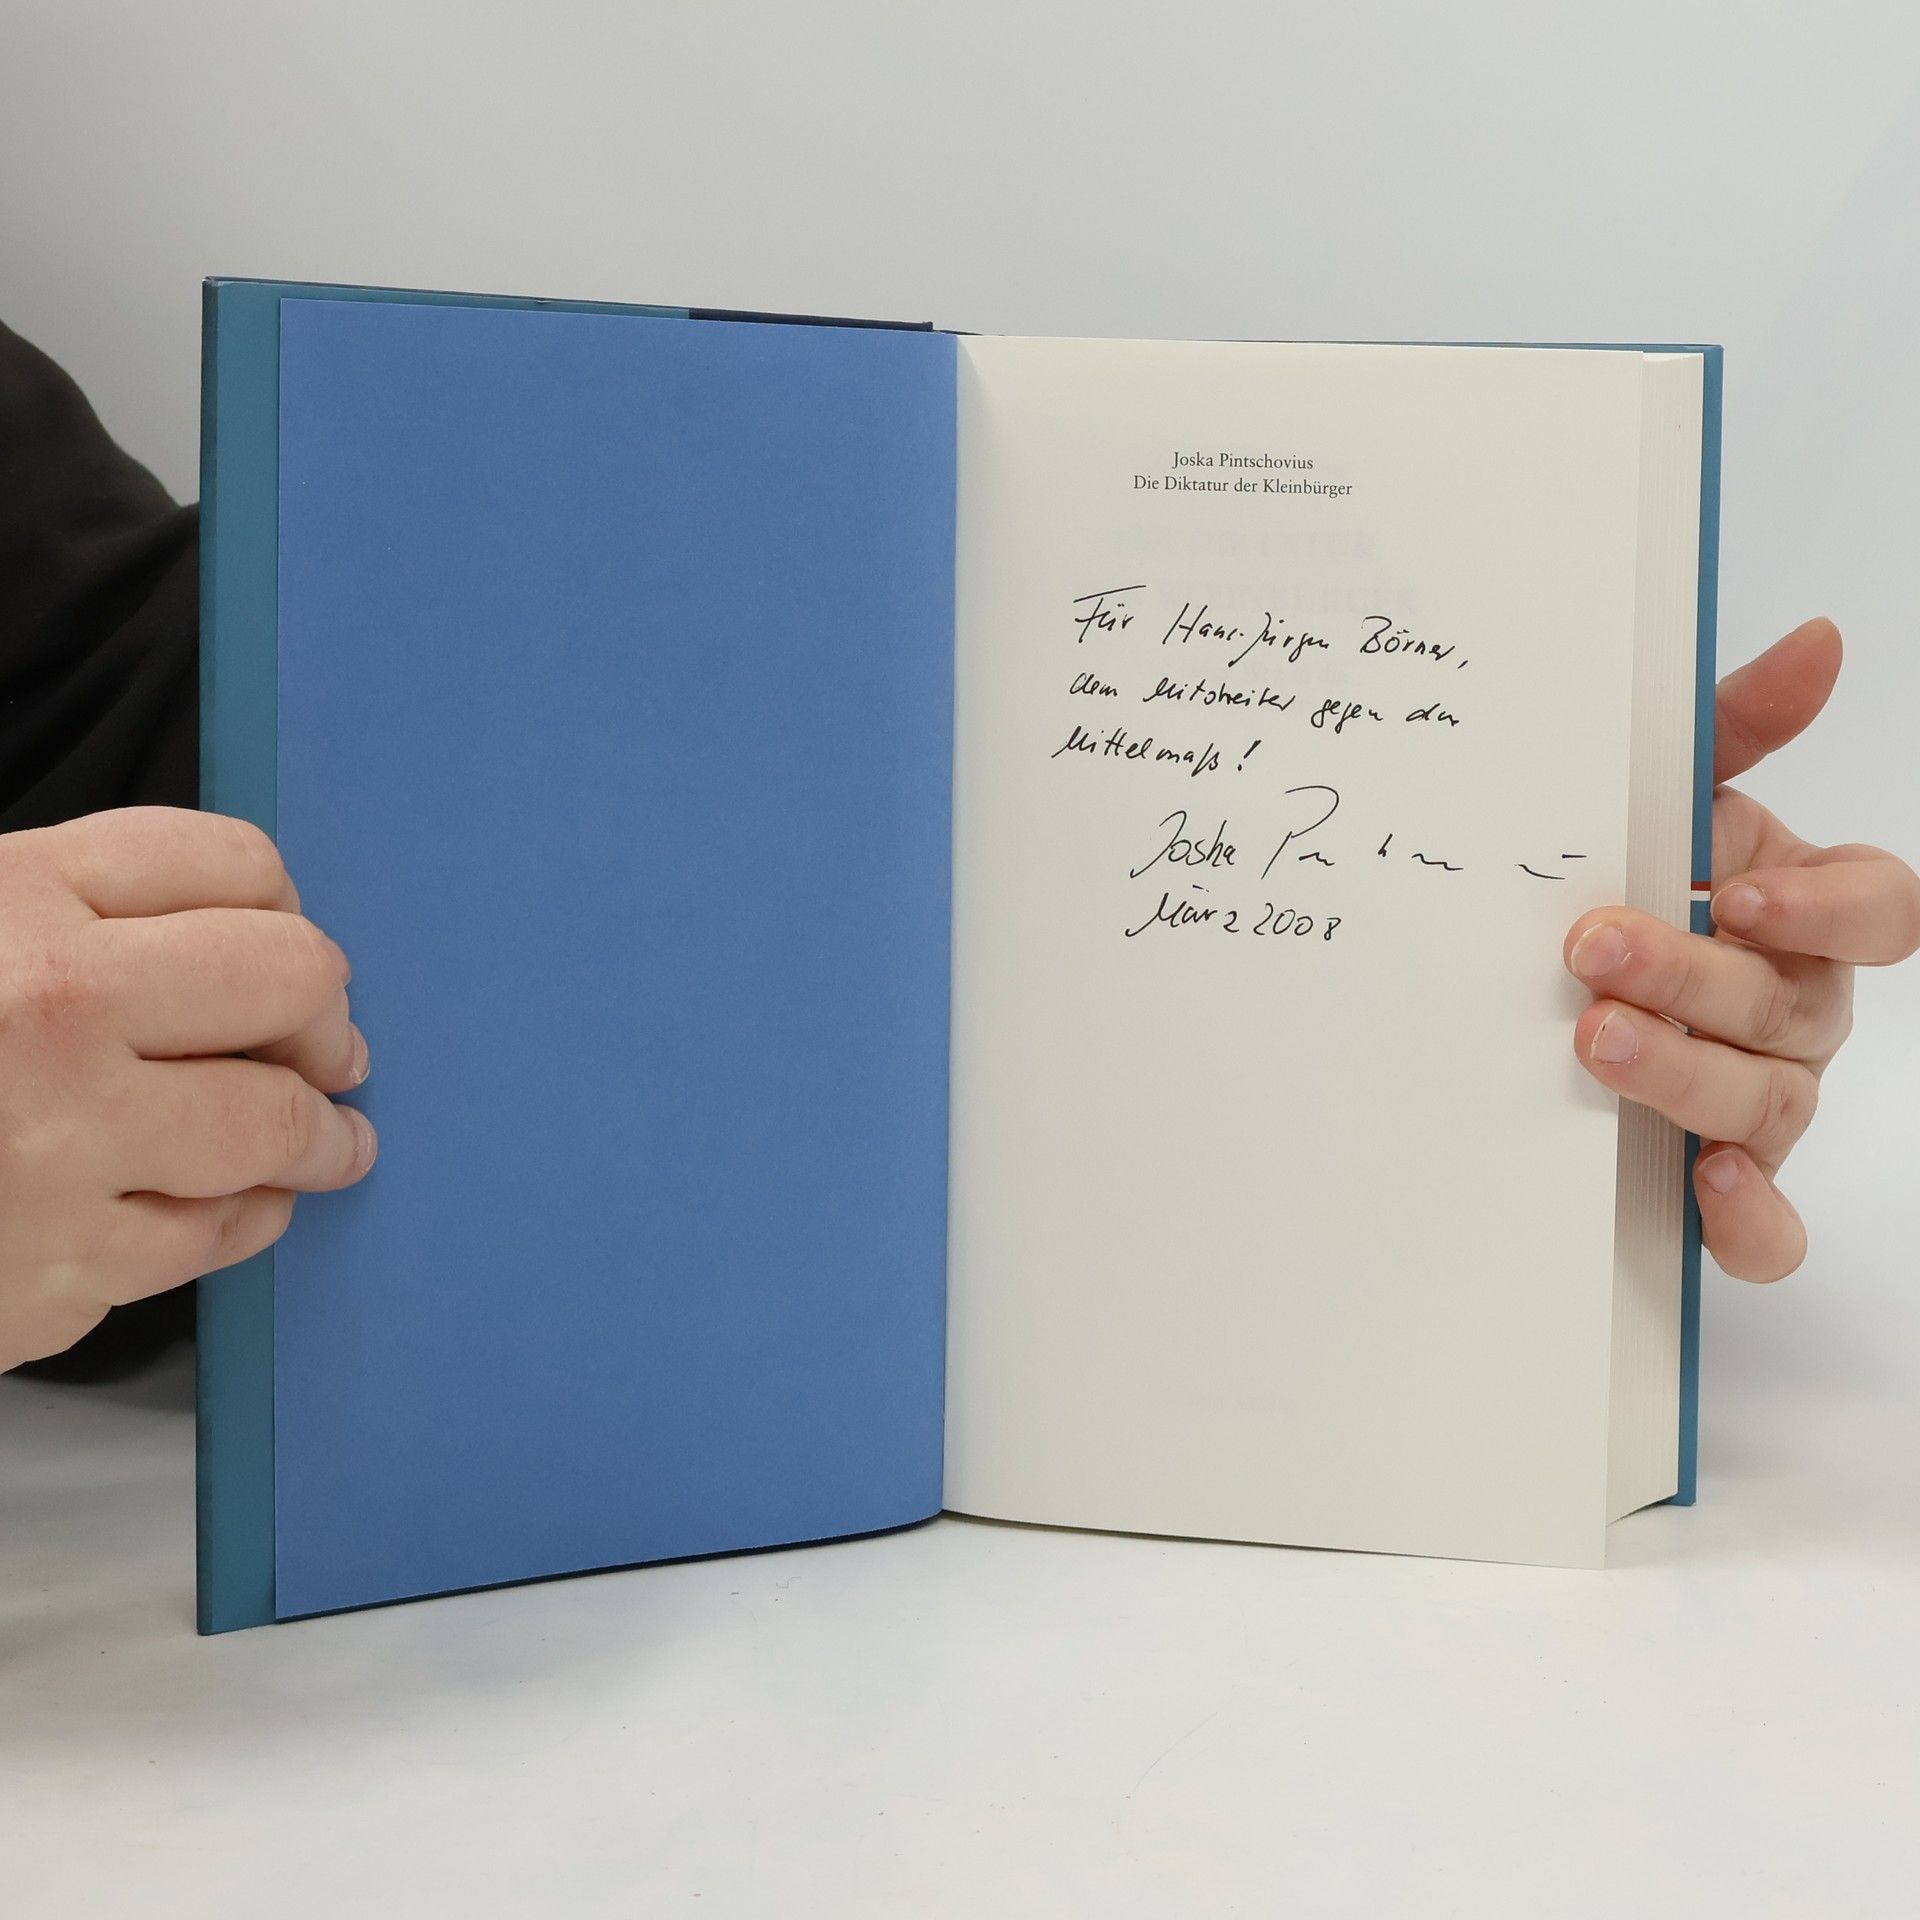 Joska Pintschovius
Die Diktatur der Kleinbürger
Für Hans-Jürgen Börner,
dem Mitstreiter gegen das
Mittelmaß!
Joska
März 2008